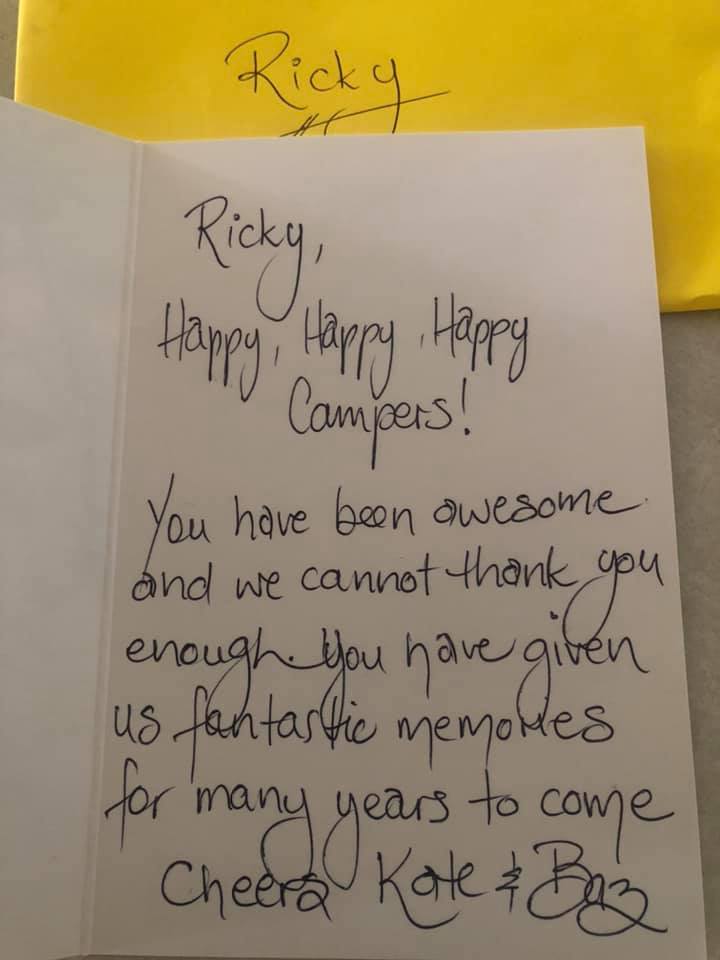 Ricky
Ricky,
Happy, Happy, Happy
Campers!
You have been awesome
and we cannot thank you
enough. You have given
us fantastic memories
for many years to come
Cheers Kate & Baz